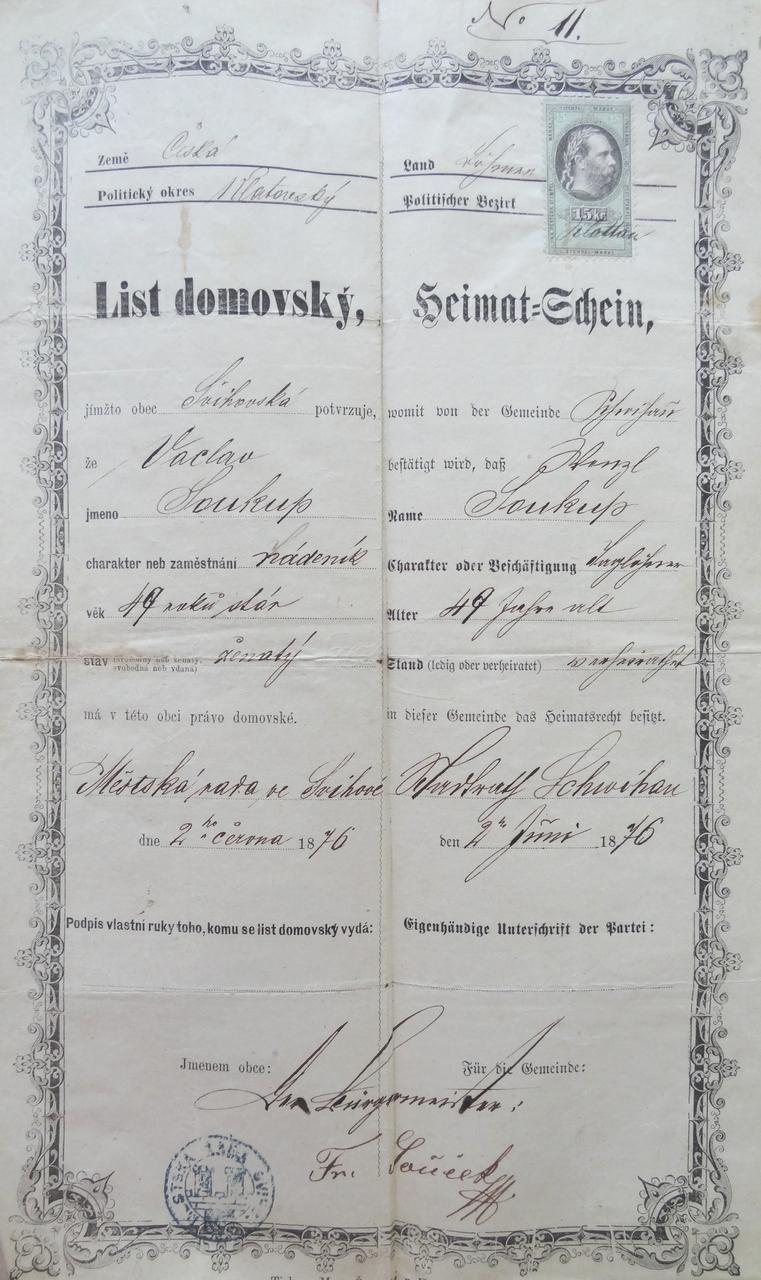 No 11.
Země Česká
Politický okres Klatovský
List domovský,
jímžto obec Švihovská potvrzuje,
že Vaclav
jmeno Soukup
charakter neb zaměstnání nádeník
věk 49 roků stár
stav (svobodný neb ženatý, svobodná neb vdaná) ženatý
má v této obci právo domovské.
Městská rada ve Svihově
dne 2ho června 1876
Podpis vlastní ruky toho, komu se list domovský vydá:
Jmenem obce:
Land Böhmen
Politischer Bezirk Klattau
15 kr
Heimat-Schein,
womit von der Gemeinde Schwihau
bestätigt wird, daß Wenzl
Name Soukup
Charakter oder Beschäftigung Taglöhner
Alter 49 Jahre alt
Stand (ledig oder verheiratet) verheirathet
in dieser Gemeinde das Heimatsrecht besitzt.
Stadtrath Schwihau
den 2n Juni 1876
Eigenhändige Unterschrift der Partei:
Für die Gemeinde:
Der Bürgermeister:
Fr. Souček